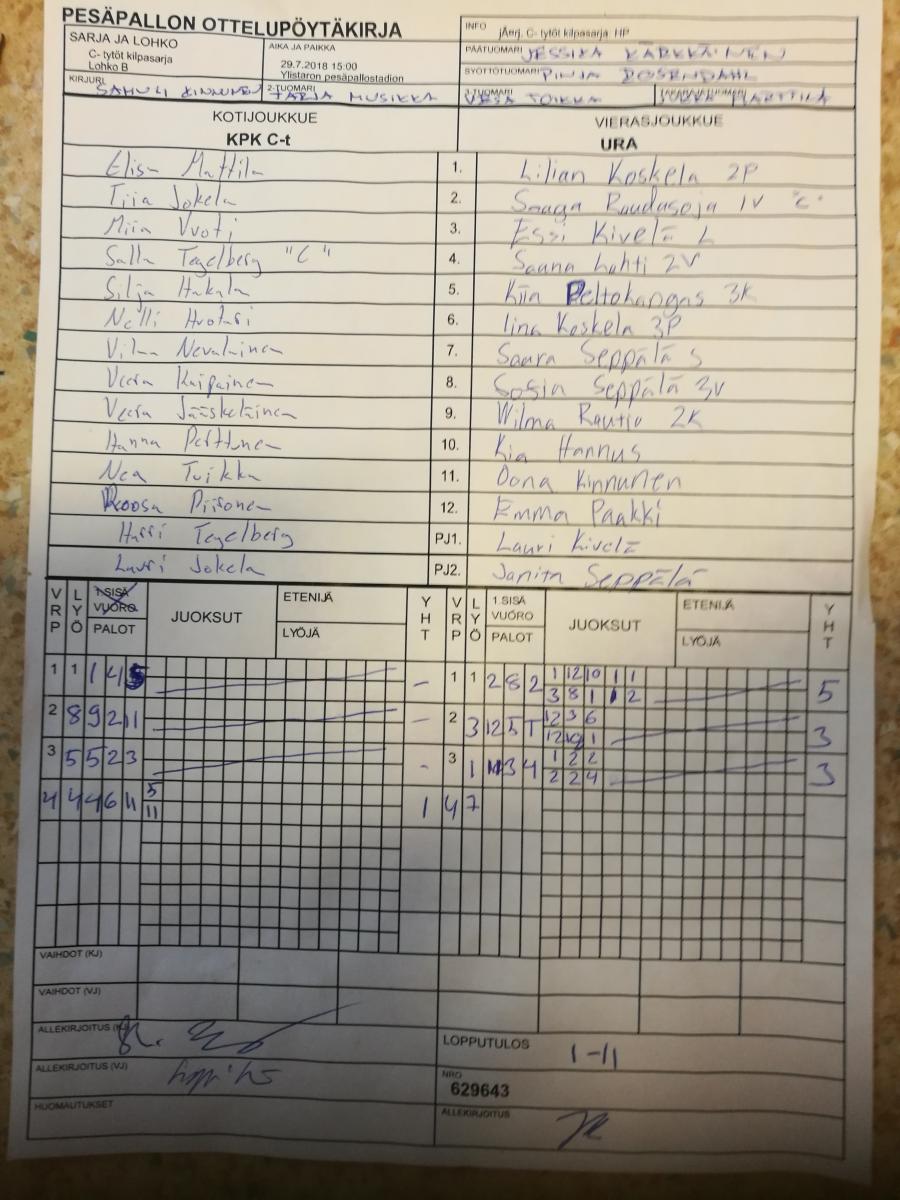 PESÄPALLON OTTELUPÖYTÄKIRJA
INFO jÄrj. C- tytöt kilpasarja HP
SARJA JA LOHKO
C- tytöt kilpasarja
Lohko B
AIKA JA PAIKKA
29.7.2018 15:00
Ylistaron pesäpallostadion
PÄÄTUOMARI JESSIKA KÄRKKÄINEN
SYÖTTÖTUOMARI PINJA ROSENDAHL
KIRJURI SAMULI KINNUNEN
2-TUOMARI TARJA MUSIKKA
3-TUOMARI VESA TOIKKA
TAKARAJATUOMARI MARTTILA
KOTIJOUKKUE
KPK C-t
VIERASJOUKKUE
URA
Elisa Mattila 1. Lilian Koskela 2P
Tiia Jokela 2. Saaga Raudasoja 1V "C"
Miia Vuoti 3. Essi Kivelä L
Salla Tegelberg "C" 4. Sanna Lahti 2V
Silja Hakala 5. Kiia Peltokangas 3K
Nelli Huotari 6. Iina Koskela 3P
Vilma Nevalainen 7. Saara Seppälä S
Veera Kaipainen 8. Sofia Seppälä 3V
Veera Jääskeläinen 9. Wilma Rautio 2K
Hanna Perttunen 10. Kia Hannus
Nea Tuikka 11. Oona Kinnunen
Roosa Piironen 12. Emma Paakki
Harri Tegelberg PJ1. Lauri Kivelä
Lauri Jokela PJ2. Janita Seppälä
VRP LYÖ 1.SISÄ VUORO PALOT JUOKSUT ETENIJÄ LYÖJÄ YHT VRP LYÖ 1.SISÄ VUORO PALOT JUOKSUT ETENIJÄ LYÖJÄ YHT
1 1 1 4 5 - 1 1 2 8 2 1 12 10 1 1 5
3 8 1 1 2
2 8 9 2 11 - 2 3 12 5 T 12 3 6 3
12 10 1
3 5 5 2 3 - 3 1 11 3 4 1 2 2 3
2 2 4
4 4 4 6 11 5 1 4 7
11
VAIHDOT (KJ)
VAIHDOT (VJ)
ALLEKIRJOITUS (KJ)
LOPPUTULOS 1-11
ALLEKIRJOITUS (VJ)
NRO
629643
HUOMAUTUKSET
ALLEKIRJOITUS